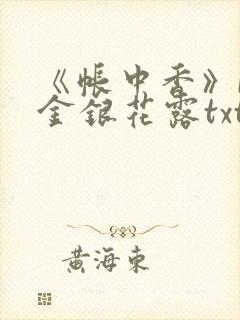 《帐中香》
金银花露txt
黄海东